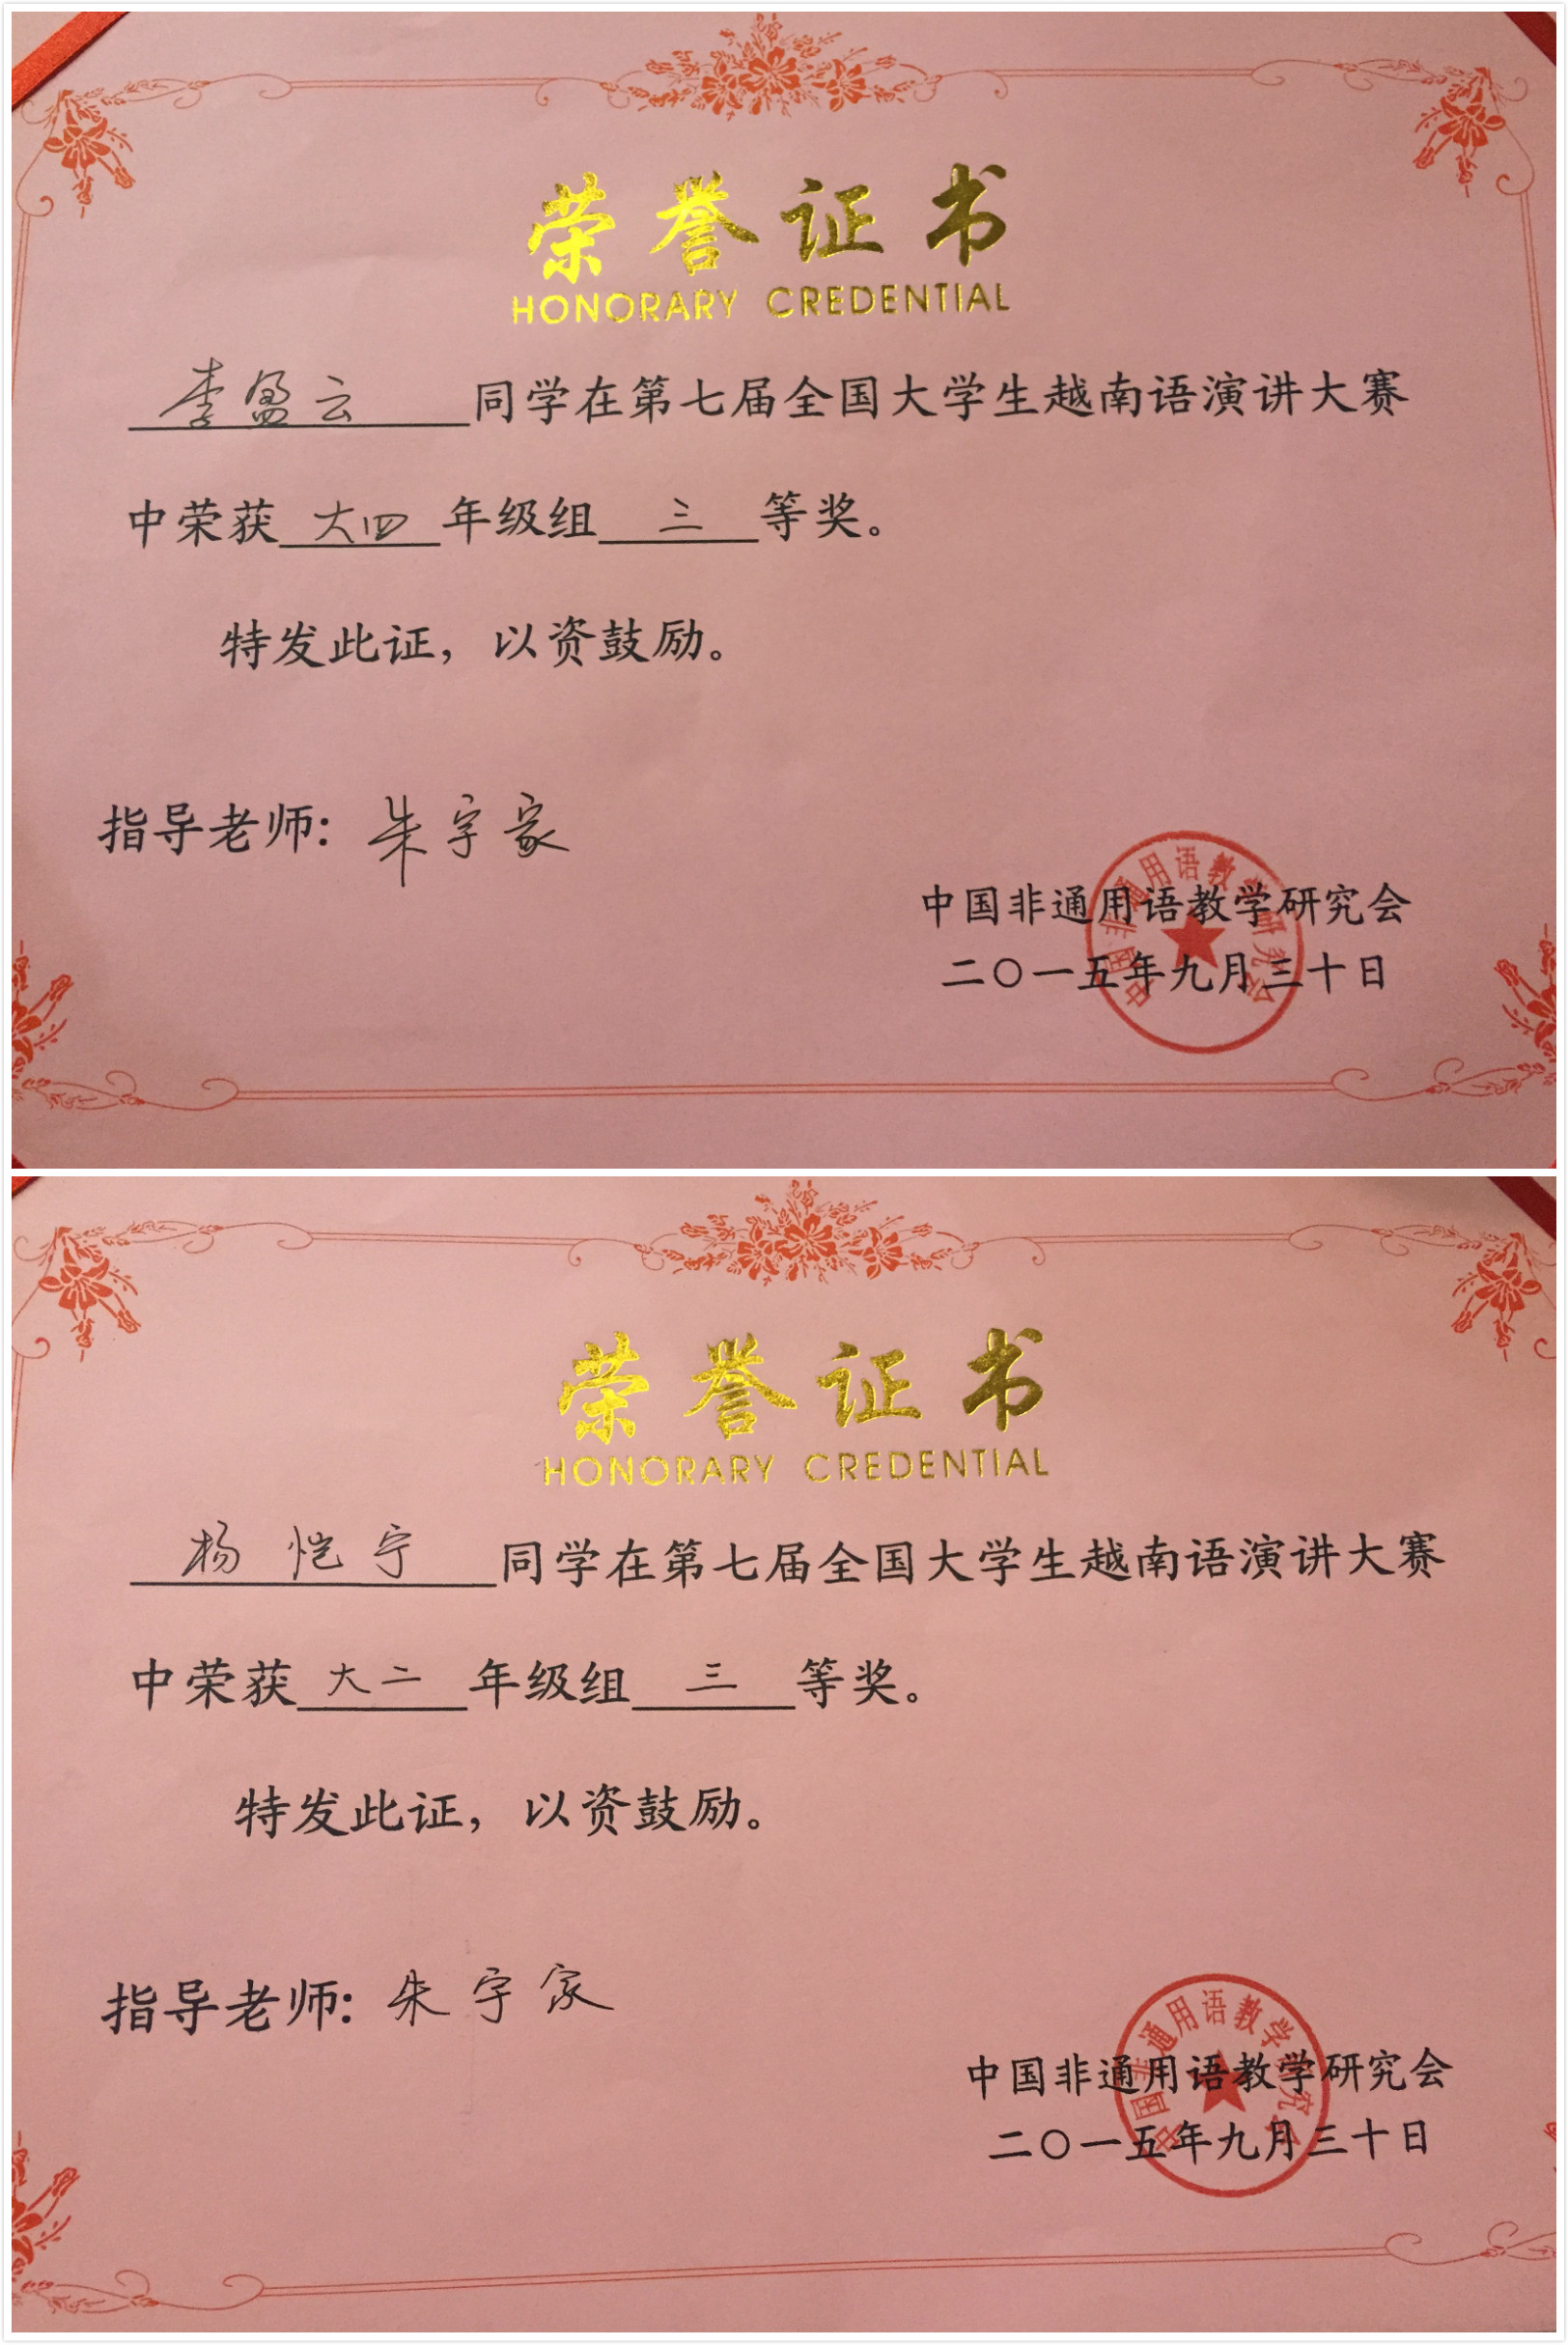 荣誉证书
HONORARY CREDENTIAL
李盈云同学在第七届全国大学生越南语演讲大赛
中荣获大四年级组三等奖。
特发此证，以资鼓励。
指导老师: 朱宇家
中国非通用语教学研究会
二〇一五年九月三十日
中国非通用语教学研究会
荣誉证书
HONORARY CREDENTIAL
杨恺宁同学在第七届全国大学生越南语演讲大赛
中荣获大二年级组三等奖。
特发此证，以资鼓励。
指导老师: 朱宇家
中国非通用语教学研究会
二〇一五年九月三十日
中国非通用语教学研究会